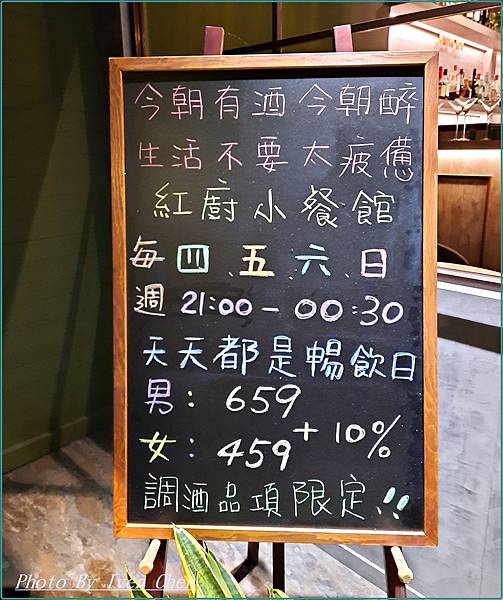 今朝有酒今朝醉
生活不要太疲憊
紅廚小餐館
每週 四、五、六、日
21:00 - 00:30
天天都是暢飲日
男：659
女：459 + 10%
調酒品項限定!!
Photo By Iven Chen